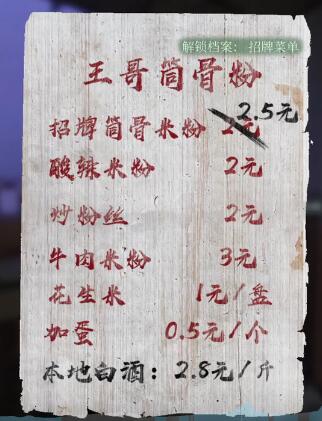 解锁档案: 招牌菜单
王哥筒骨粉
2.5元
招牌筒骨米粉 2元
酸辣米粉 2元
炒粉丝 2元
牛肉米粉 3元
花生米 1元/盘
加蛋 0.5元/个
本地白酒: 2.8元/斤